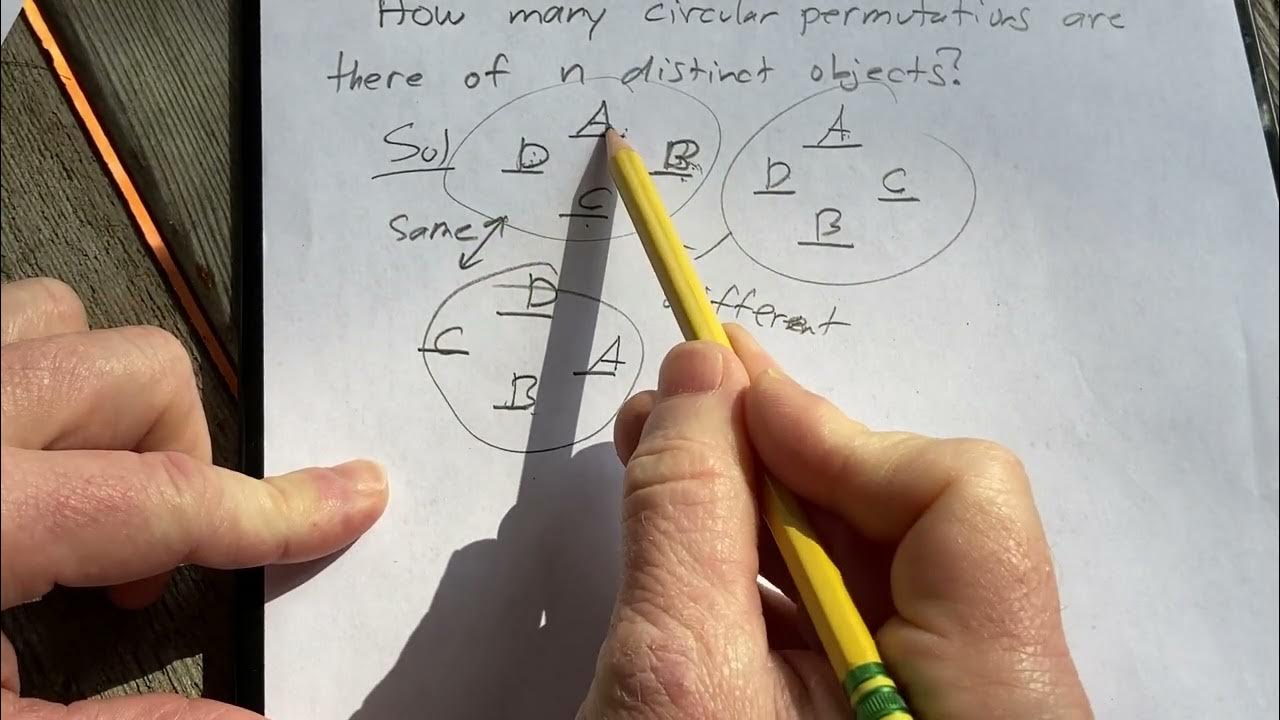 How many circular permutations are
there of n distinct objects?
Sol
A
D B
C
A
D C
B
Same
different
D
C A
B